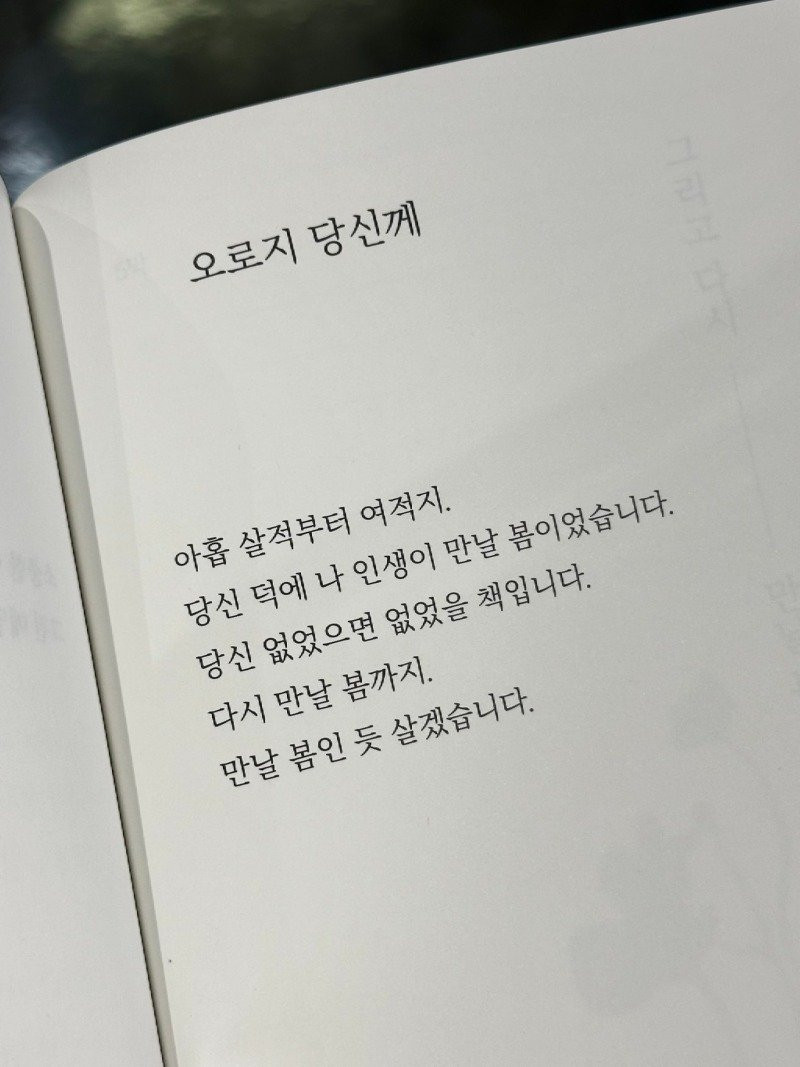 오로지 당신께
아홉 살적부터 여적지.
당신 덕에 나 인생이 만날 봄이었습니다.
당신 없었으면 없었을 책입니다.
다시 만날 봄까지.
만날 봄인 듯 살겠습니다.
그리고 다시